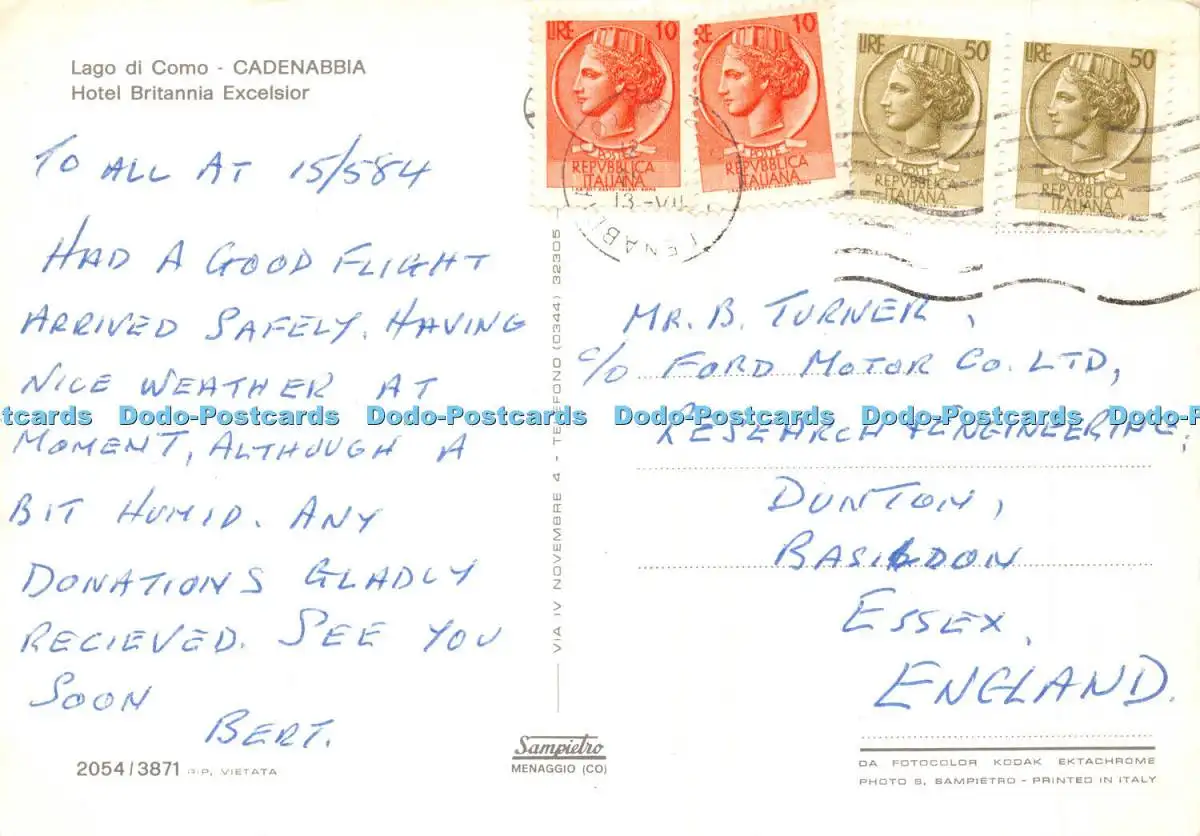 Lago di Como - CADENABBIA
Hotel Britannia Excelsior
TO ALL AT 15/584
HAD A GOOD FLIGHT
ARRIVED SAFELY. HAVING
NICE WEATHER AT
MOMENT, ALTHOUGH A
BIT HUMID. ANY
DONATIONS GLADLY
RECIEVED. SEE YOU
SOON
BERT.
2054/3871 RIP. VIETATA
VIA IV NOVEMBRE 4 - TELEFONO (0344) 32305
Sampietro
MENAGGIO (CO)
LIRE 10
POSTE
REPVBBLICA
ITALIANA
LIRE 10
POSTE
REPVBBLICA
ITALIANA
LIRE 50
POSTE
REPVBBLICA
ITALIANA
LIRE 50
POSTE
REPVBBLICA
ITALIANA
13-VII
MR. B. TURNER,
C/O FORD MOTOR CO. LTD,
RESEARCH & ENGINEERING,
DUNTON,
BASILDON
ESSEX,
ENGLAND.
DA FOTOCOLOR KODAK EKTACHROME
PHOTO S. SAMPIETRO - PRINTED IN ITALY
Dodo-Postcards Dodo-Postcards Dodo-Postcards Dodo-Postcards